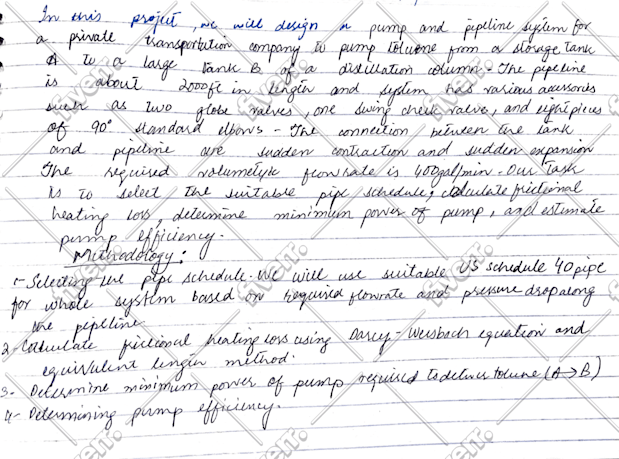 In this project, we will design a pump and pipeline system for
a private transportation company to pump toluene from a storage tank
A to a large tank B of a distillation column. The pipeline
is about 2000ft in length and system has various accessories
such as two globe valves, one swing check valve, and eight pieces
of 90° standard elbows - The connection between the tank
and pipeline are sudden contraction and sudden expansion
The required volumetric flowrate is 400gal/min. Our task
is to select the suitable pipe schedule, calculate frictional
heating loss, determine minimum power of pump, and estimate
pump efficiency.
Methodology:
1- Selecting the pipe schedule. We will use suitable US schedule 40 pipe
for whole system based on required flowrate and pressure drop along
the pipeline
2- Calculate frictional heating loss using Darcy-Weisbach equation and
equivalent length method.
3- Determine minimum power of pump required to deliver tolune (A→B)
4- Determining pump efficiency.
fiverr.